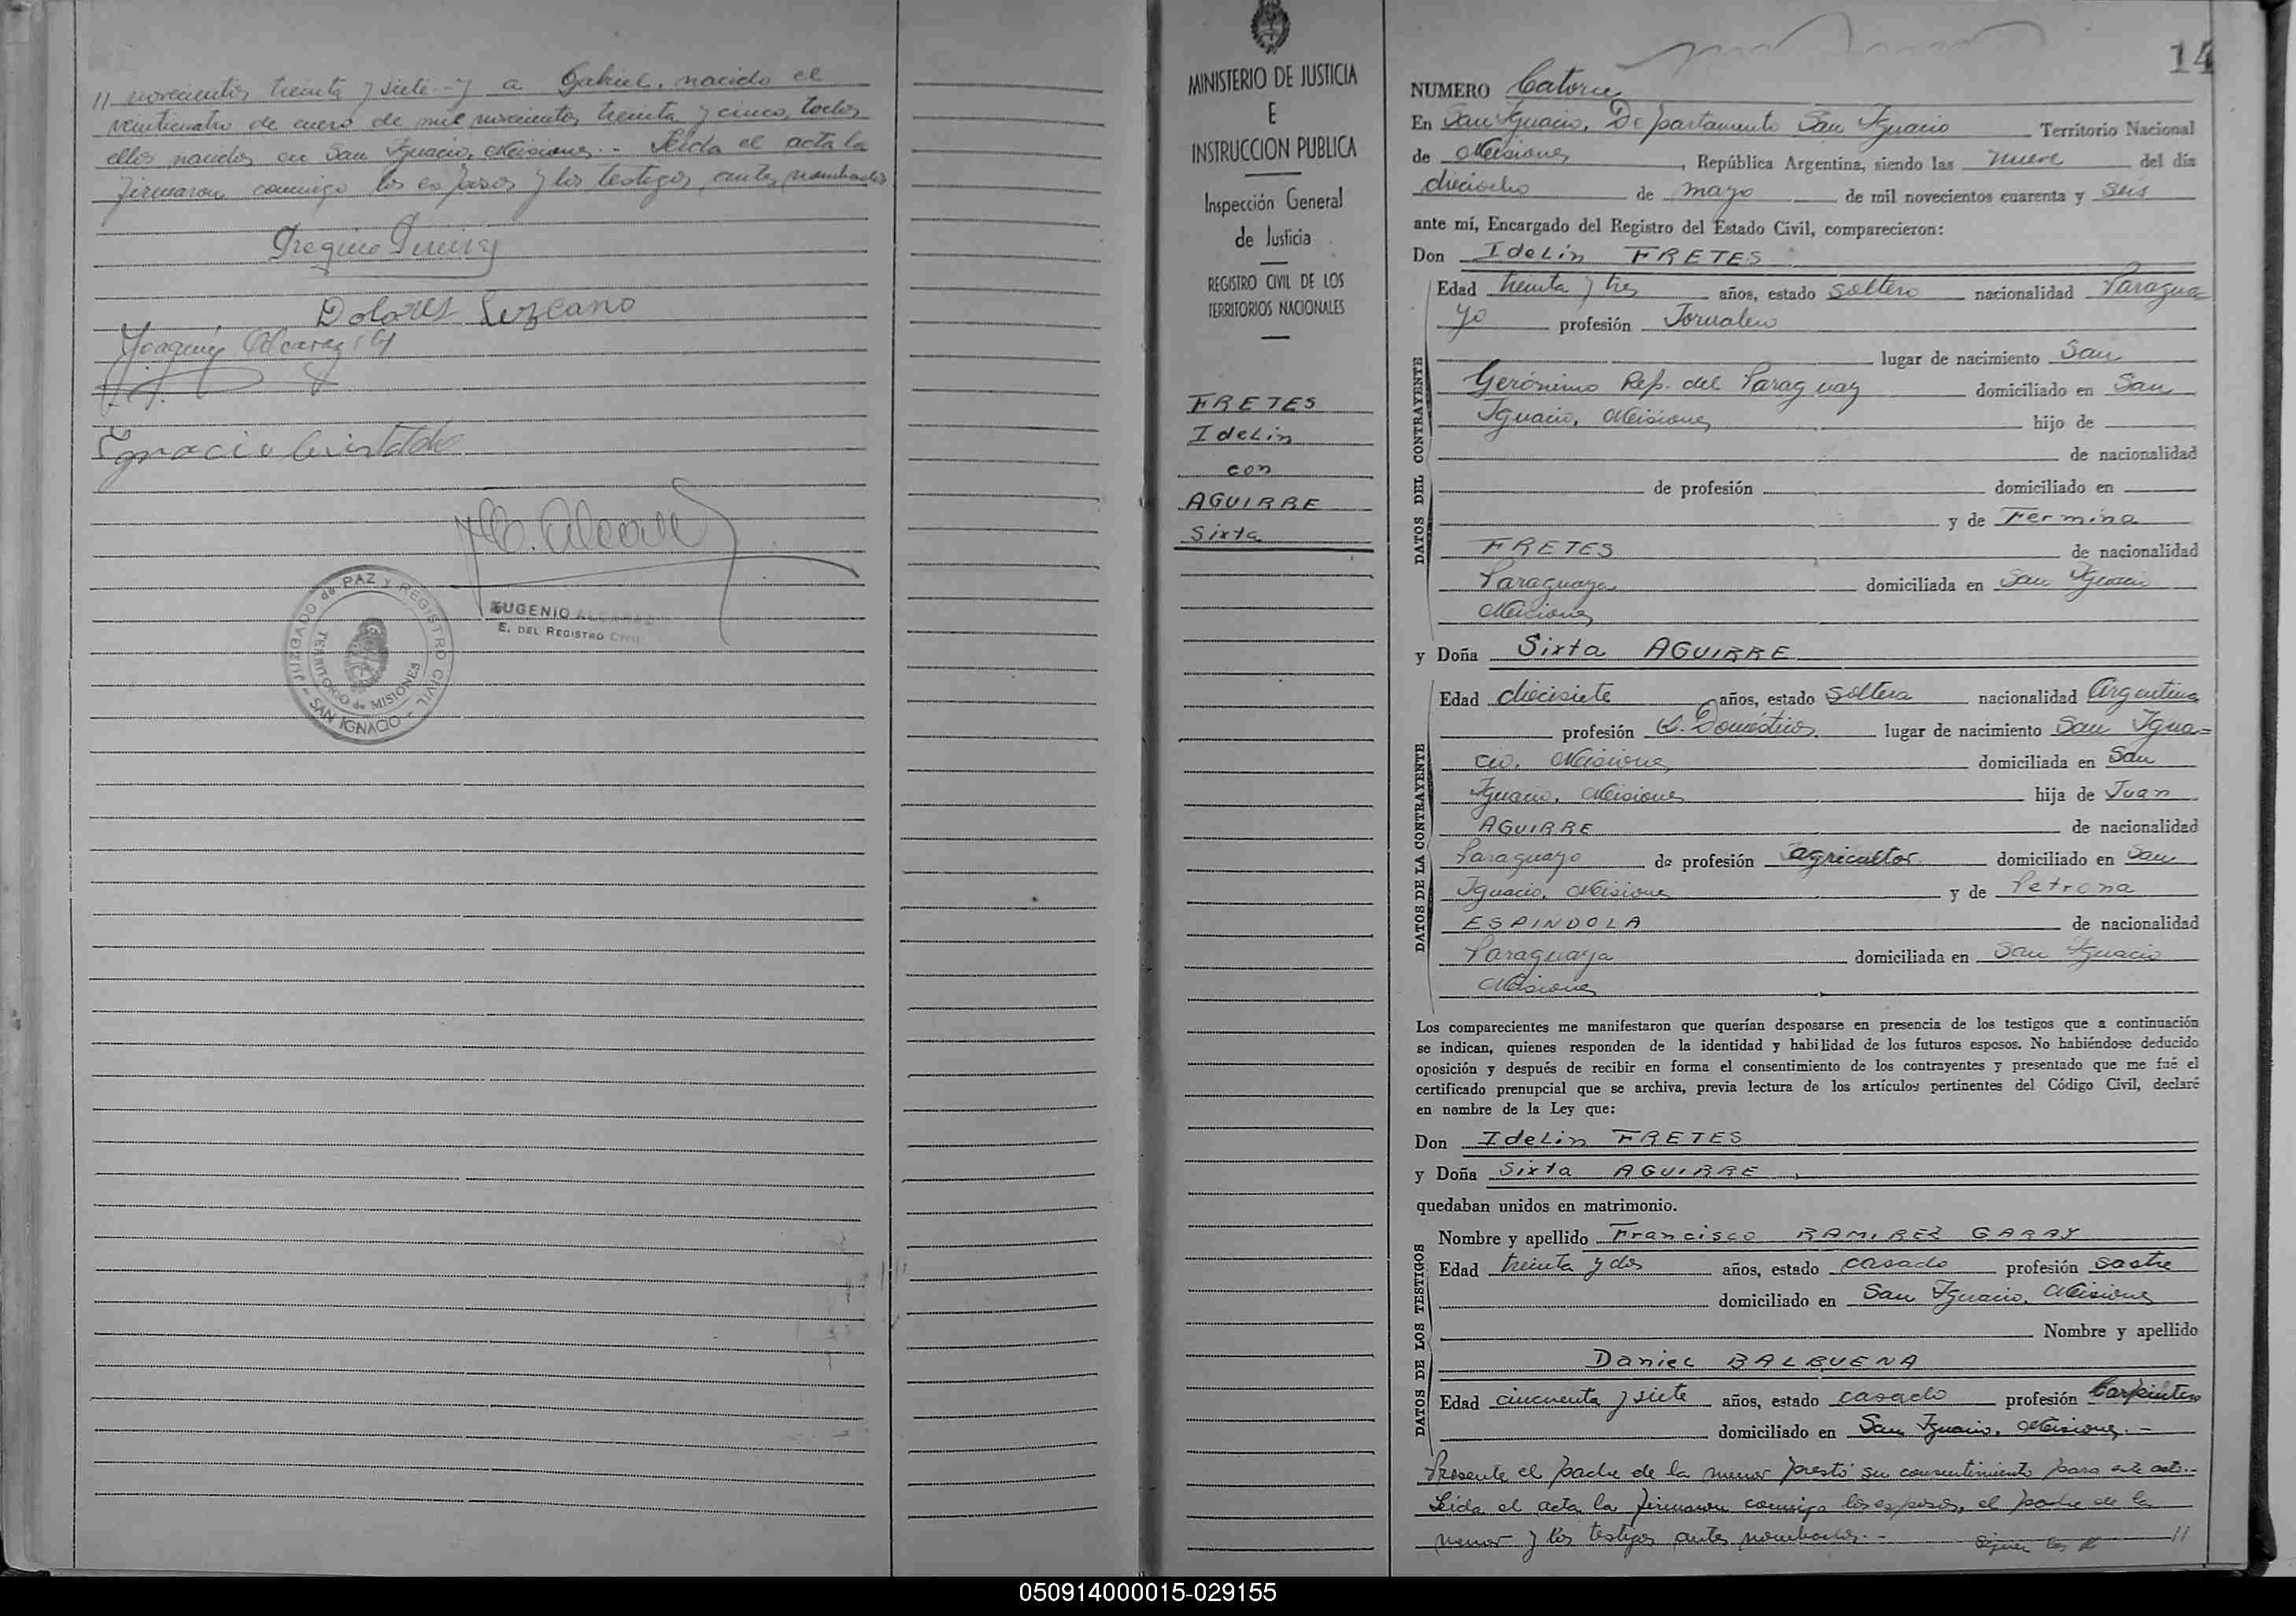 // novecientos treinta y siete.- y a Gabriel, nacido el
veinticuatro de enero de mil novecientos treinta y cinco, todos
ellos nacidos en San Ignacio, Misiones.- Leída el acta la
firmaron conmigo los esposos y los testigos antes nombrados
Dolores Lezcano
Joaquin Alcaraz
Ignacio
EUGENIO ALCARAZ
E. DEL REGISTRO CIVIL
JUZGADO de PAZ Y REGISTRO CIVIL
TERRITORIO de MISIONES
- SAN IGNACIO -
MINISTERIO DE JUSTICIA
E
INSTRUCCION PUBLICA
Inspección General
de Justicia
REGISTRO CIVIL DE LOS
TERRITORIOS NACIONALES
FRETES
Idelin
con
AGUIRRE
Sixta
14
NUMERO Catorce
En San Ignacio, Departamento San Ignacio Territorio Nacional
de Misiones, República Argentina, siendo las nueve del día
dieciocho de mayo de mil novecientos cuarenta y seis
ante mí, Encargado del Registro del Estado Civil, comparecieron:
Don Idelin FRETES
DATOS DEL CONTRAYENTE
Edad treinta y tres años, estado soltero nacionalidad Paragua
yo profesión Jornalero
lugar de nacimiento San
Gerónimo Rep. del Paraguay domiciliado en San
Ignacio, Misiones hijo de
de nacionalidad
de profesión domiciliado en
y de Fermina
FRETES de nacionalidad
Paraguaya domiciliada en San Ignacio
Misiones
y Doña Sixta AGUIRRE
DATOS DE LA CONTRAYENTE
Edad diecisiete años, estado soltera nacionalidad Argentina
profesión Q. Domésticos lugar de nacimiento San Igna=
cio, Misiones domiciliada en San
Ignacio, Misiones hija de Juan
AGUIRRE de nacionalidad
Paraguayo de profesión agricultor domiciliado en San
Ignacio, Misiones y de Petrona
ESPINDOLA de nacionalidad
Paraguaya domiciliada en San Ignacio
Misiones
Los comparecientes me manifestaron que querían desposarse en presencia de los testigos que a continuación
se indican, quienes responden de la identidad y habilidad de los futuros esposos. No habiéndose deducido
oposición y después de recibir en forma el consentimiento de los contrayentes y presentado que me fué el
certificado prenupcial que se archiva, previa lectura de los artículos pertinentes del Código Civil, declaré
en nombre de la Ley que:
Don Idelin FRETES
y Doña Sixta AGUIRRE
quedaban unidos en matrimonio.
DATOS DE LOS TESTIGOS
Nombre y apellido Francisco RAMIREZ GARAY
Edad treinta y dos años, estado casado profesión sastre
domiciliado en San Ignacio, Misiones
Nombre y apellido
Daniel BALBUENA
Edad cincuenta y siete años, estado casado profesión Carpintero
domiciliado en San Ignacio, Misiones.-
Presente el padre de la menor prestó su consentimiento para este acto.-
Leída el acta la firmaron conmigo los esposos, el padre de la
menor y los testigos antes nombrados.- //
050914000015-029155